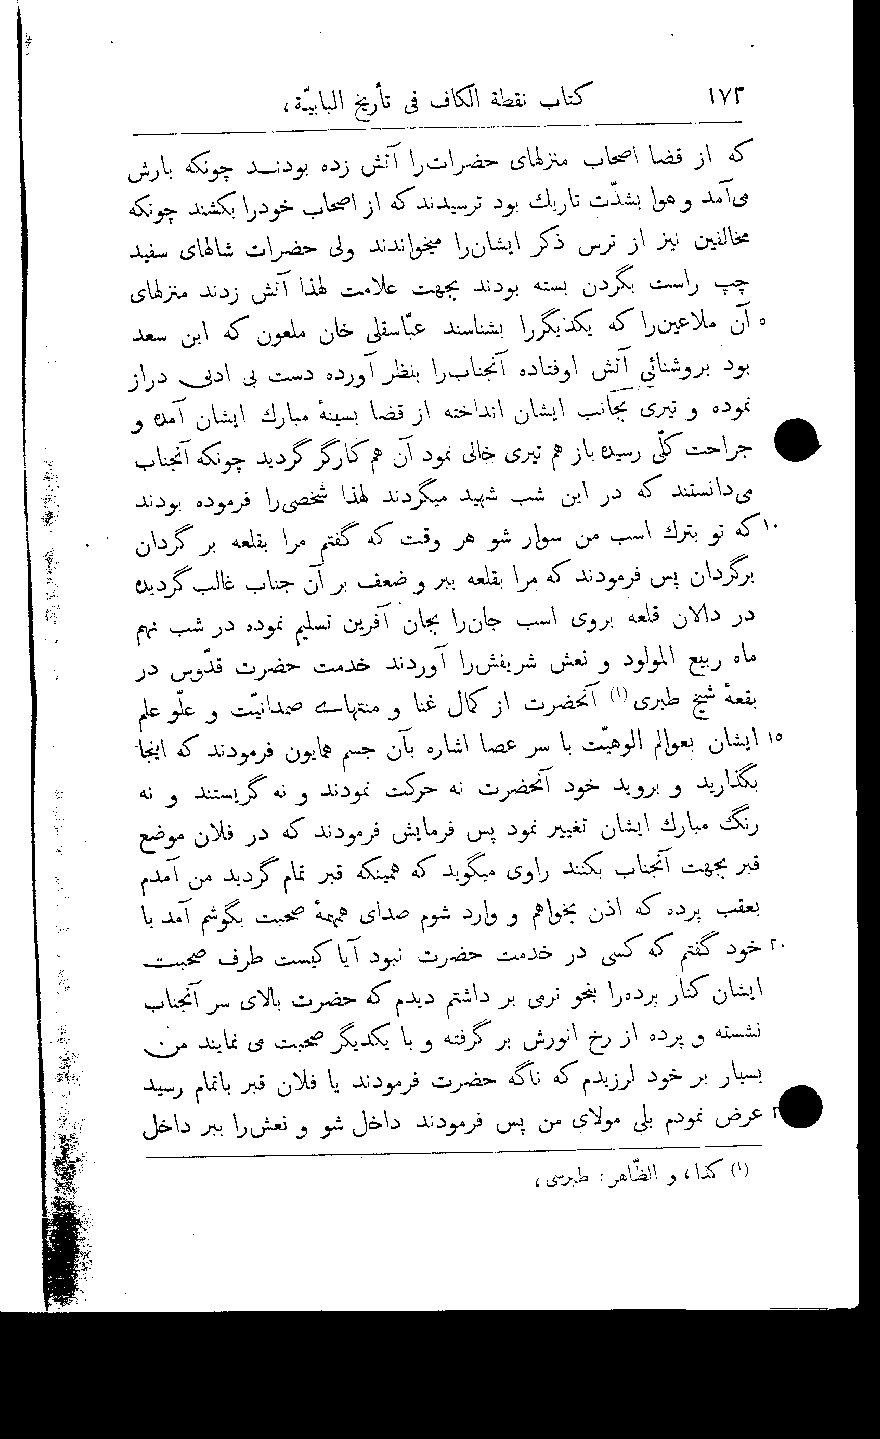 ١٧٣ كتاب نقطة الكاف فى تأريخ البابيّة،
كه از قضا اصحاب منزلهاى حضرات‌را آتش زده بودنــد چونكه بارش
مى‌آمد و هوا بشدّت تاريك بود ترسيدند كه از اصحاب خودرا بكشند چونكه
مخالفين نيز از ترس ذكر ايشان‌را ميخواندند ولى حضرات شالهاى سفيد
چپ راست بگردن بسته بودند بجهت علامت لهذا آتش زدند منزلهاى
٥ آن ملاعين‌را كه يكديگررا بشناسند عبّاسقلى خان ملعون كه ابن سعد
بود بروشنائي آتش اوفتاده آنجناب‌را بنظر آورده دست بى ادبى دراز
نموده و تيرى بجانب ايشان انداخته از قضا بسينهٔ مبارك ايشان آمده و
جراحت كلّى رسيده باز هم تيرى خالى نمود آن هم كارگر گرديد چونكه آنجناب
مى‌دانستند كه در اين شب شهيد ميگردند لهذا شخصى‌را فرموده بودند
١٠ كه تو بترك اسب من سوار شو هر وقت كه گفتم مرا بقلعه بر گردان
برگردان پس فرمودند كه مرا بقلعه ببر و ضعف بر آن جناب غالب گرديده
در دالان قلعه بروى اسب جان‌را بجان آفرين تسليم نموده در شب نهم
ماه ربيع المولود و نعش شريفش‌را آوردند خدمت حضرت قدّوس در
بقعهٔ شيخ طبرى (١) آنحضرت از كمال غنا و منتهاى صمدانيّت و علّو علم
١٥ ايشان بعوالم الوهيّت با سر عصا اشاره بآن جسم همايون فرمودند كه اينجا
بگذاريد و برويد خود آنحضرت نه حركت نمودند و نه گريستند و نه
رنگ مبارك ايشان تغيير نمود پس فرمايش فرمودند كه در فلان موضع
قبر بجهت آنجناب بكنند راوى ميگويد كه همينكه قبر تمام گرديد من آمدم
بعقب پرده كه اذن بخواهم و وارد شوم صداى همهمهٔ صحبت بگوشم آمد با
٢٠ خود گفتم كه كسى در خدمت حضرت نبود آيا كيست طرف صحبت
ايشان كنار پرده‌را بنحو نرمى بر داشتم ديدم كه حضرت بالاى سر آنجناب
نشسته و پرده از رخ انورش بر گرفته و با يكديگر صحبت مى نمايند من
بسيار بر خود لرزيدم كه ناگه حضرت فرمودند يا فلان قبر باتمام رسيد
عرض نمودم بلى مولاى من پس فرمودند داخل شو و نعش‌را ببر داخل
(١) كذا، و الظّاهر: طبرسى،